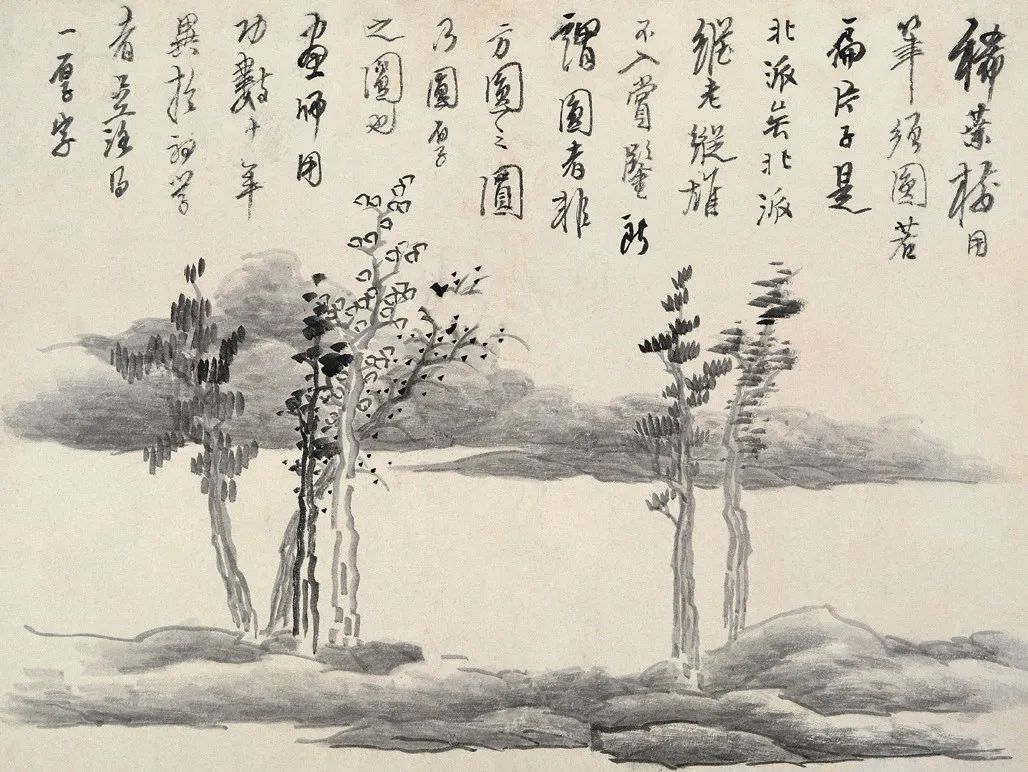 稀葉樹用
筆須圓若
扁片子是
北派矣北派
縱老縱雄
不入賞鑒所
謂圓者非
方圓之圓
乃圓厚
之圓也
畫師用
功數十年
異於初學
者得
一厚字